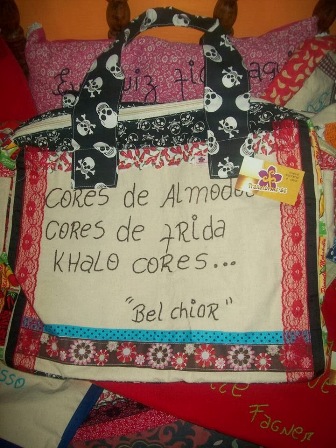 Eu fiz
CORES de Almodo
CORES de FRida
KHalo CORES...
"BelchioR"
sso
FagneR